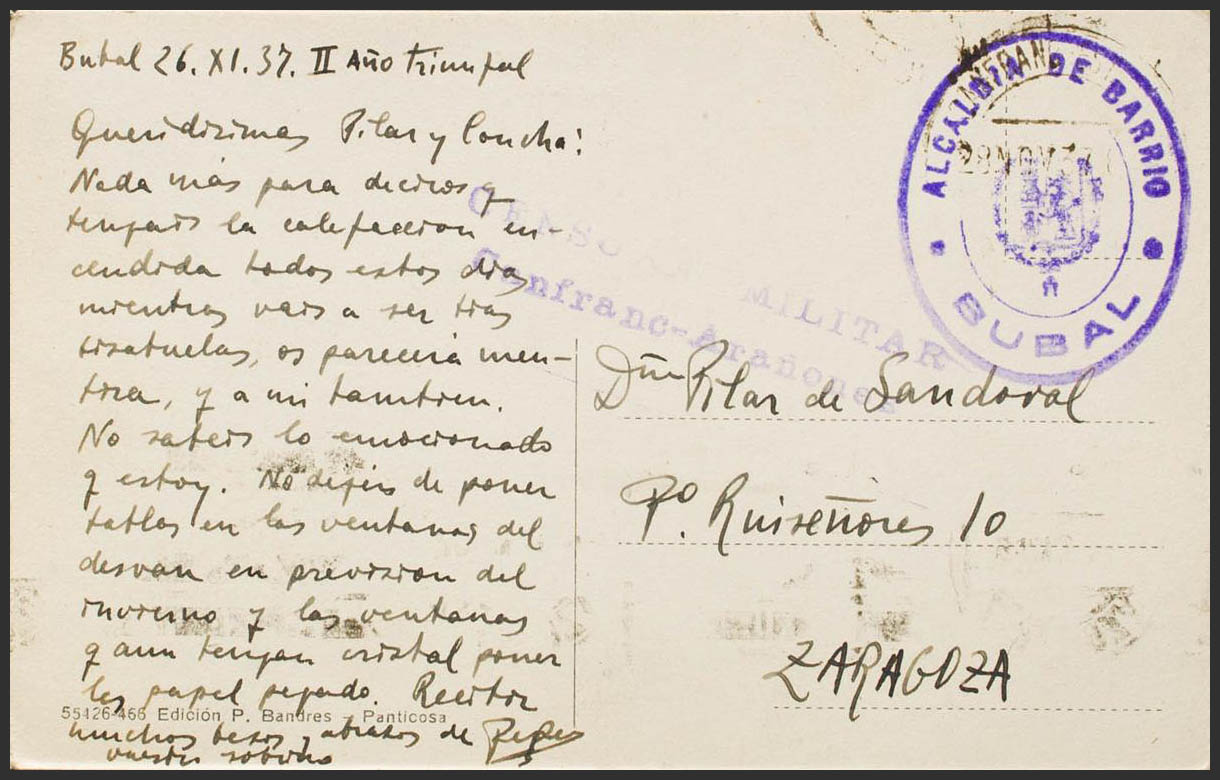 Bubal 26. XI. 37. II Año Triunfal
Queridisimas Pilar y Concha:
Nada más para deciros q
tengais la calefaccion en-
cendida todos estos dias
mientras vais a ser tias
tisabuelas, os parecerá men-
tira, y a mi tambien.
No sabeis lo emocionado
q estoy. No dejeis de poner
tablas en las ventanas del
desvan en prevision del
invierno y las ventanas
q aun tengan cristal poner
les papel pegado. Recibir
muchos besos y abrazos de Pepe
vuestro sobrino
55426-466 Edición P. Bandres - Panticosa
CENSURA MILITAR
Canfranc-Arañones
ALCALDIA DE BARRIO
BUBAL
CANFRANC
28 NOV 37
Dña Pilar de Sandoval
Pº. Ruiseñores 10
ZARAGOZA